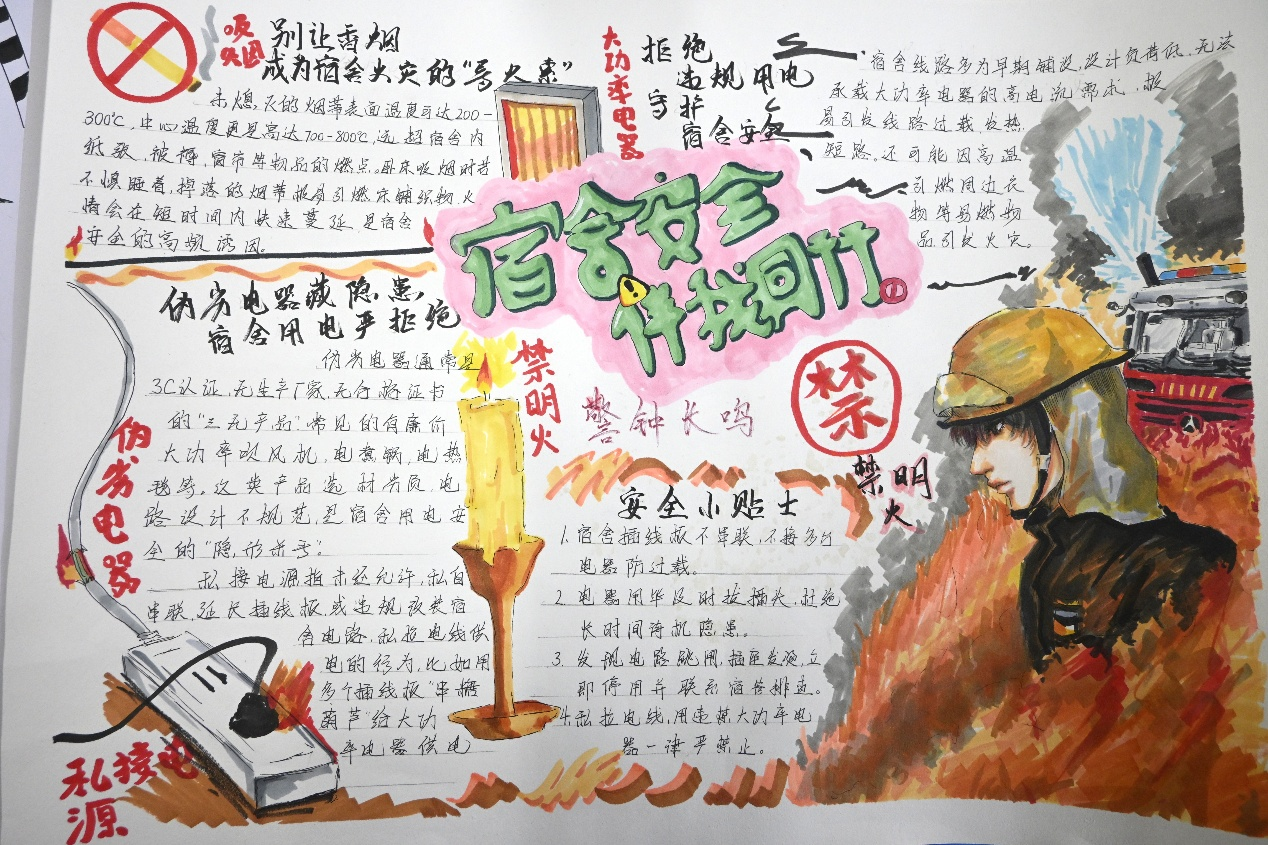 吸烟
火
别让香烟
成为宿舍火灾的“导火索”
未熄灭的烟蒂表面温度可达200-
300℃,中心温度更是高达700-800℃,远超宿舍内
纸张、被褥、窗帘等物品的燃点。卧床吸烟时若
不慎睡着,掉落的烟蒂极易引燃床铺织物,火
情会在短时间内快速蔓延,是宿舍
安全的高频诱因。
大功率电器
拒绝
违规用电
守护
宿舍安全
宿舍线路多为早期铺设,设计负荷低,无法
承载大功率电器的高电流需求,极
易引发线路过载、发热
短路。还可能因高温
引燃周边衣
物等易燃物
品,引发火灾。
宿舍安全
伪劣电器藏隐患,
宿舍用电严拒绝
伪劣电器通常是
3C认证、无生产厂家、无合格证书
的“三无产品”常见的有廉价
大功率吹风机、电煮锅、电热
毯等。这类产品选材劣质,电
路设计不规范,是宿舍用电安
全的“隐形杀手”。
私接电源指未经允许,私自
串联、延长插线板或违规改装宿
舍电路,私拉电线供
电的行为,比如用
多个插线板“串糖
葫芦”给大功
率电器供电
伪劣电器
私接电源
禁明火
警钟长鸣
禁
禁明火
安全小贴士
1.宿舍插线板不串联,不接多台
电器防过载。
2.电器用毕及时拔插头,杜绝
长时间待机隐患。
3.发现电路跳闸,插座发烫,立
即停用并联系宿管排查。
4.私拉电线,用违禁大功率电
器一律严禁止。